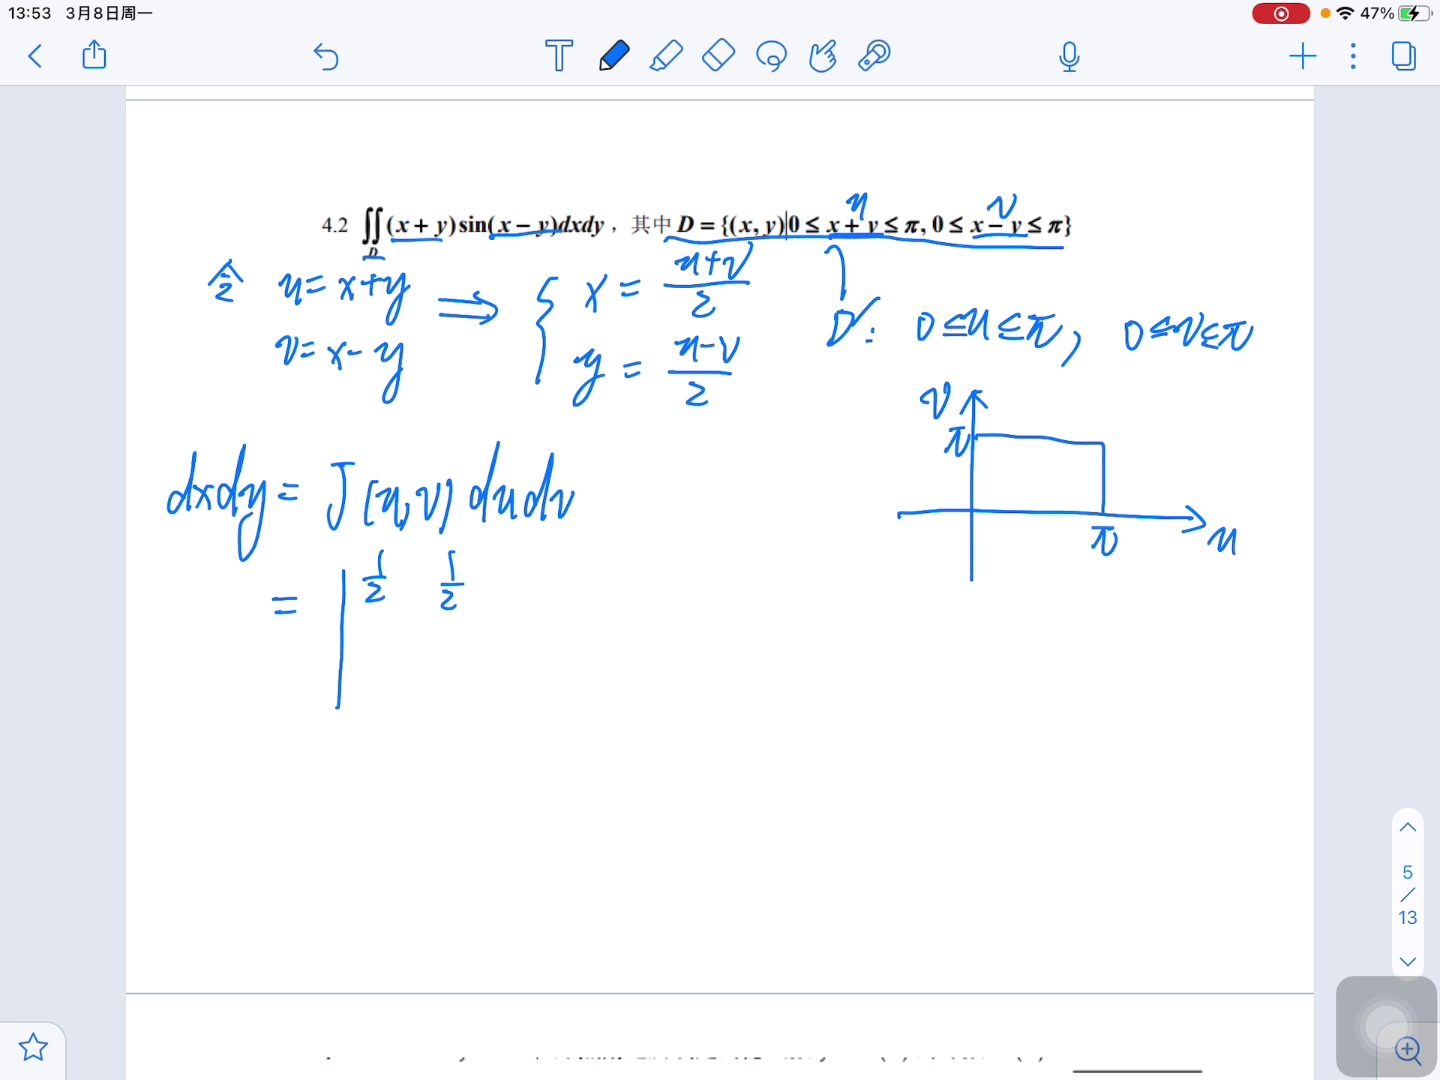 13:53 3月8日周一
47%
4.2 ∬_D (x + y) sin(x − y)dxdy , 其中 D = {(x, y)|0 ≤ x + y ≤ π, 0 ≤ x − y ≤ π}
u v
令 u = x+y ⇒ { x = (u+v)/2
v = x-y y = (u-v)/2
D': 0≤u≤π, 0≤v≤π
v
π
π u
dxdy = J(u,v) dudv
= | 1/2 1/2
5
/
13